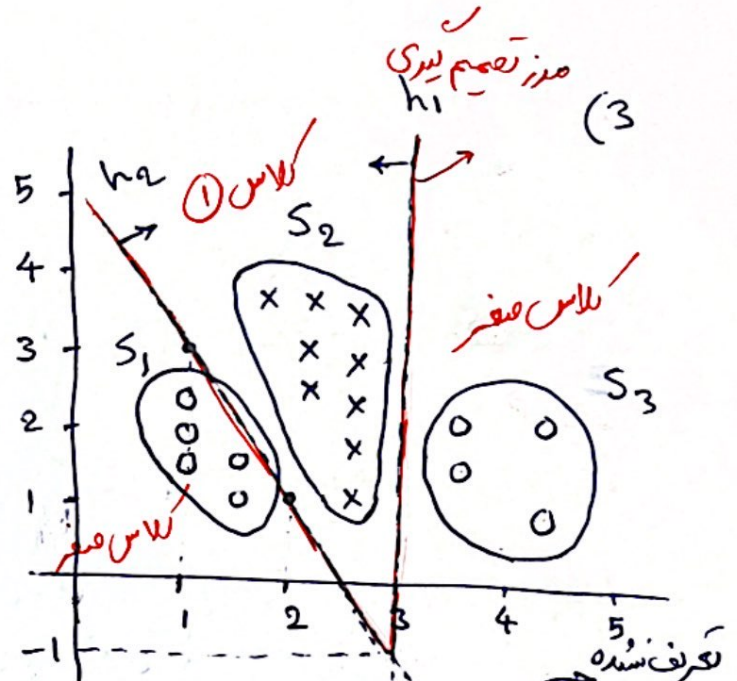 مرز تصمیم گیری
h1
(3
h2
کلاس ①
5
S2
4
کلاس صفر
3
S1
S3
2
1
کلاس صفر
1
2
3
4
5
-1
تعریف نشده